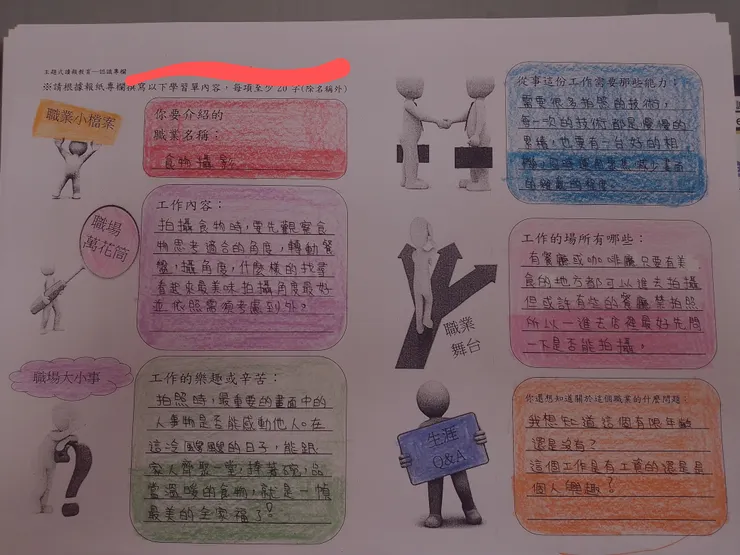 主題式讀報教育—認識專欄
※請根據報紙專欄撰寫以下學習單內容，每項至少20字(除名稱外)
職業小檔案
你要介紹的
職業名稱：
食物攝影
職場
萬花筒
工作內容：
拍攝食物時，要先觀察食
物思考適合的角度，轉動餐
盤，攝角度，什麼樣的找尋
看起來最美味拍攝角度最好
並依照需
考慮到外。
職場大小事
工作的樂趣或辛苦：
拍照時，最重要的畫面中的
人事物是否能感動他人。在
這冷颼颼的日子，能跟
家人齊聚一堂，捧著碗，品
嘗溫暖的食物，就是一幀
最美的全家福了！
從事這份工作需要哪些能力：
需要很多拍照的技術，
每一次的技術都是慢慢的
累積，也要有一台好的相
機，
減少畫面
的雜亂的程度。
工作的場所有哪些：
有餐廳或咖啡廳只要有美
食的地方都可以進去拍攝
但或許有些的餐廳禁拍照
所以一進去店裡最好先問
一下是否能拍攝。
職業
舞台
生涯
Q&A
你還想知道關於這個職業的什麼問題：
我想知道這個有限年齡
還是沒有？
這個工作是有工資的還是
個人興趣？